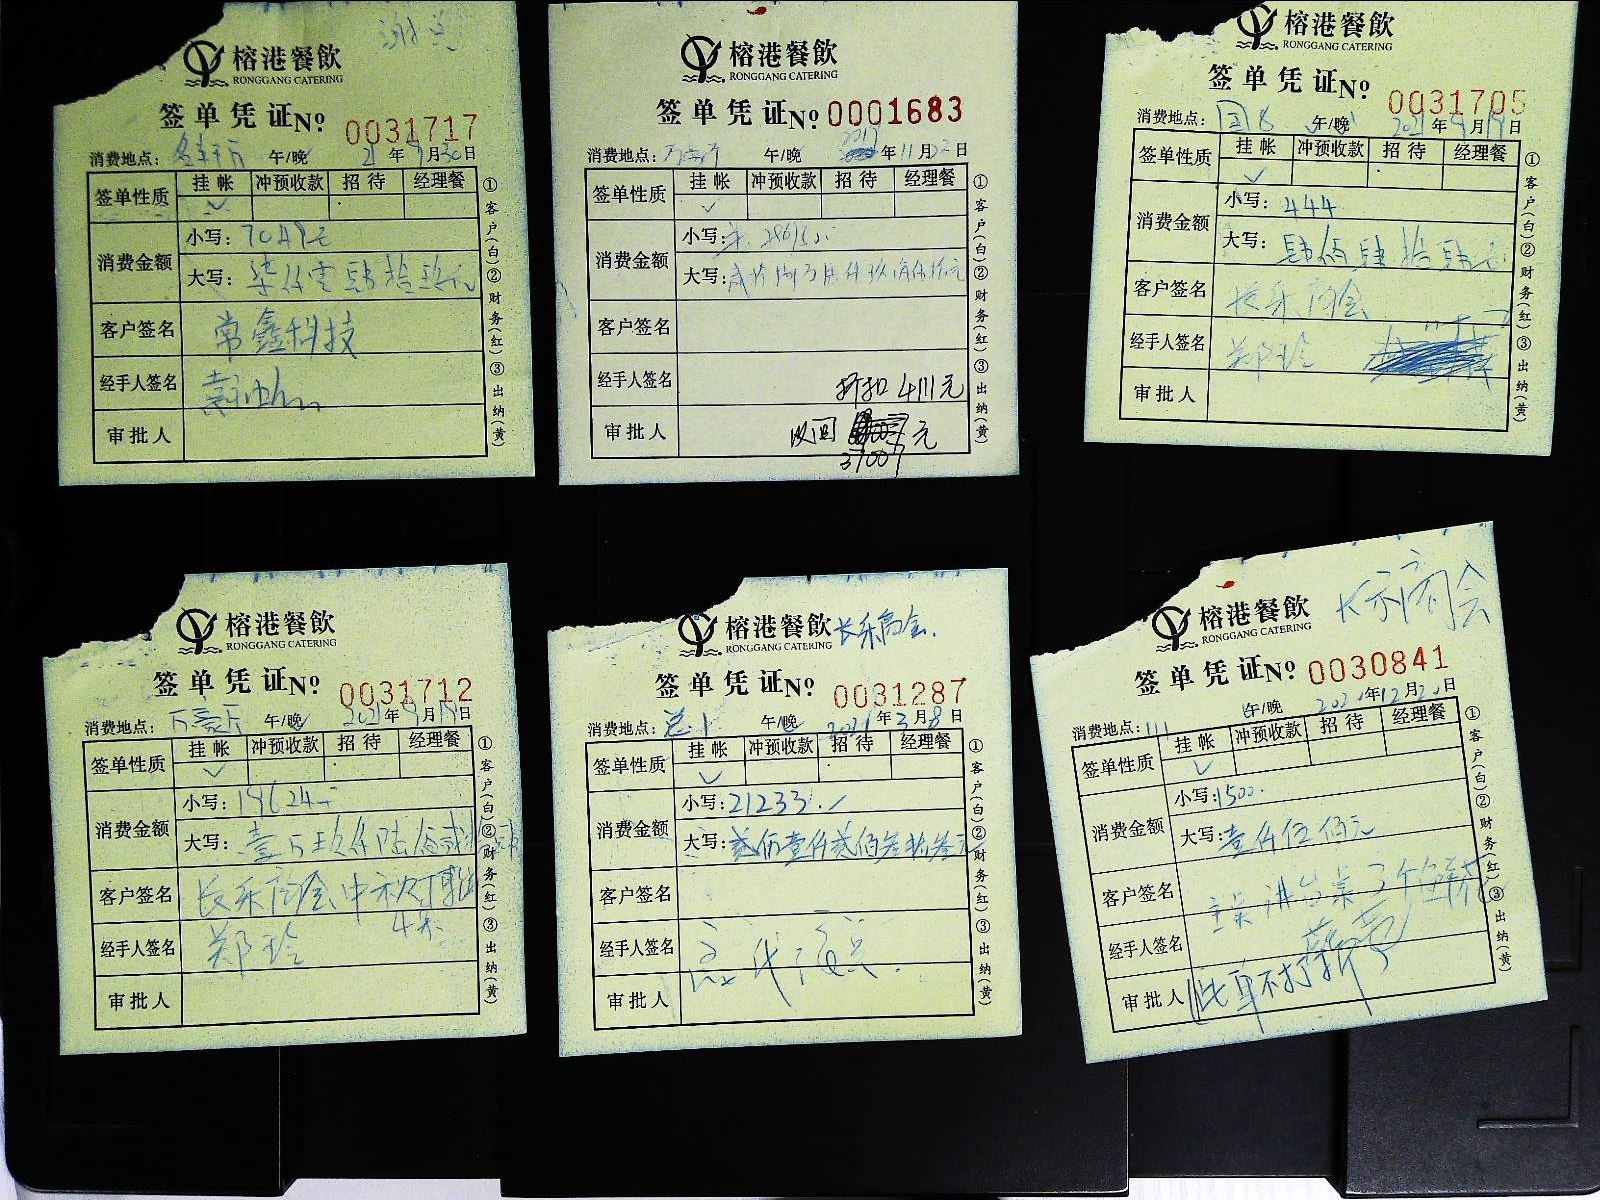 榕港餐飲
RONGGANG CATERING
签单凭证 № 0031717
消费地点： 午/晚 21年9月30日
签单性质 挂帐 冲预收款 招待 经理餐
✓
消费金额 小写：7049元
大写：柒仟零肆拾玖元
客户签名 常鑫科技
经手人签名
审批人
①客户(白)②财务(红)③出纳(黄)
榕港餐飲
RONGGANG CATERING
签单凭证 № 0001683
消费地点： 午/晚 年11月22日
签单性质 挂帐 冲预收款 招待 经理餐
✓
消费金额 小写：
大写：
客户签名
经手人签名 折扣4111元
审批人 收回 元
37007
①客户(白)②财务(红)③出纳(黄)
榕港餐飲
RONGGANG CATERING
签单凭证 № 0031705
消费地点： 午/晚 2021年9月19日
签单性质 挂帐 冲预收款 招待 经理餐
✓
消费金额 小写：444
大写：肆佰肆拾肆元
客户签名 长乐商会
经手人签名 郑玲
审批人
①客户(白)②财务(红)③出纳(黄)
榕港餐飲
RONGGANG CATERING
签单凭证 № 0031712
消费地点：万豪厅 午/晚 2021年9月19日
签单性质 挂帐 冲预收款 招待 经理餐
✓
消费金额 小写：19624元
大写：壹万玖仟陆佰贰拾肆
客户签名 长乐商会中秋
4桌
经手人签名 郑玲
审批人
①客户(白)②财务(红)③出纳(黄)
榕港餐飲 长乐商会.
RONGGANG CATERING
签单凭证 № 0031287
消费地点： 午/晚 2021年3月8日
签单性质 挂帐 冲预收款 招待 经理餐
✓
消费金额 小写：21233.
大写：贰佰壹仟贰佰叁拾叁元
客户签名
经手人签名
审批人
①客户(白)②财务(红)③出纳(黄)
榕港餐飲 长乐商会
RONGGANG CATERING
签单凭证 № 0030841
消费地点：111 午/晚 2020年12月20日
签单性质 挂帐 冲预收款 招待 经理餐
✓
消费金额 小写：1500.
大写：壹仟伍佰元
客户签名 主桌讲台桌3个鲜花
经手人签名
审批人 此单不打折
①客户(白)②财务(红)③出纳(黄)